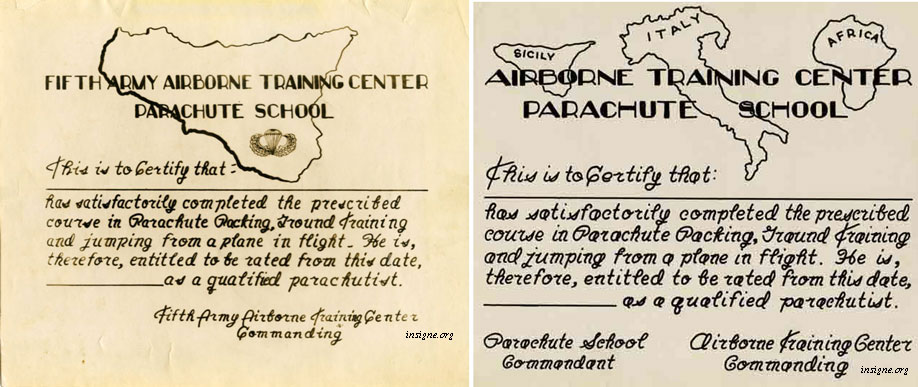 FIFTH ARMY AIRBORNE TRAINING CENTER
PARACHUTE SCHOOL
This is to Certify that:
has satisfactorily completed the prescribed
course in Parachute Packing, Ground Training
and jumping from a plane in flight. He is,
therefore, entitled to be rated from this date,
as a qualified parachutist.
Fifth Army Airborne Training Center
Commanding
insigne.org
SICILY
ITALY
AFRICA
AIRBORNE TRAINING CENTER
PARACHUTE SCHOOL
This is to Certify that:
has satisfactorily completed the prescribed
course in Parachute Packing, Ground Training
and jumping from a plane in flight. He is,
therefore, entitled to be rated from this date,
as a qualified parachutist.
Parachute School
Commandant
Airborne Training Center
Commanding
insigne.org